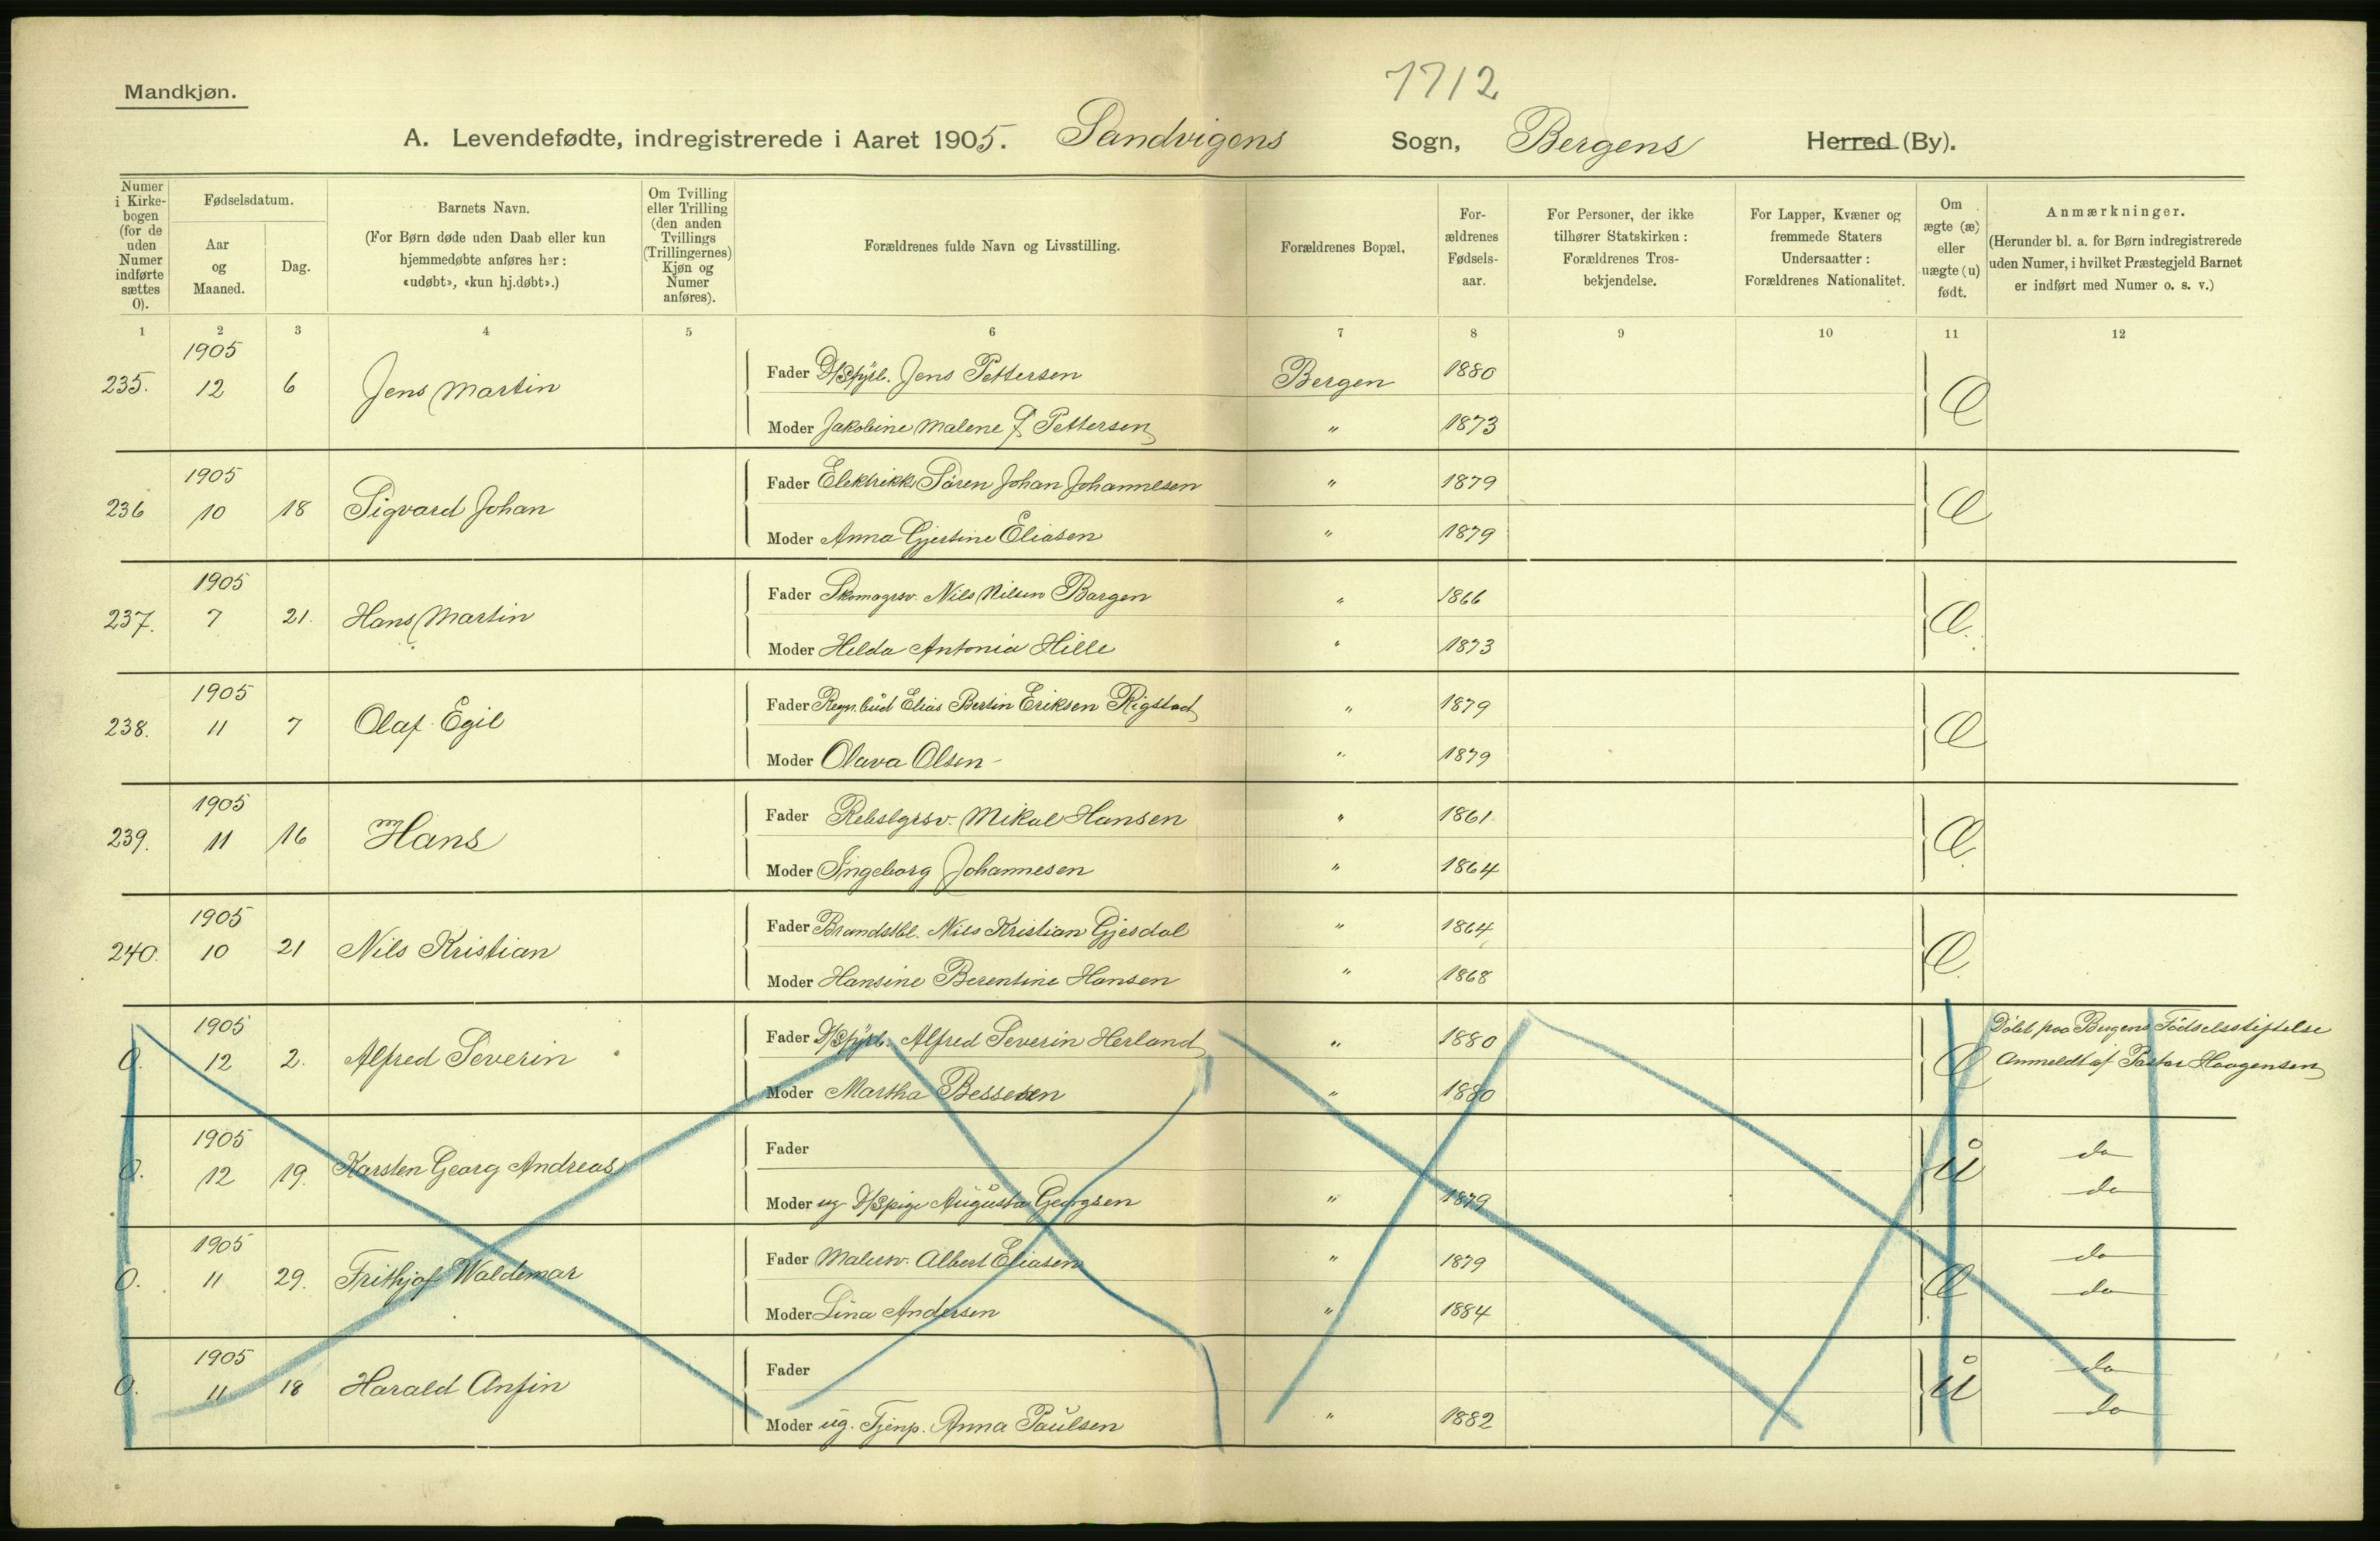 1712
Mandkjøn.
A. Levendefødte, indregistrerede i Aaret 1905. Sandvigens Sogn, Bergens Herred (By).
Numer i Kirke-bogen (for de uden Numer indførte sættes 0).
Fødselsdatum.
Aar og Maaned.
Dag.
Barnets Navn.
(For Børn døde uden Daab eller kun hjemmedøbte anføres her: «udøbt», «kun hj.døbt».)
Om Tvilling eller Trilling (den anden Tvillings (Trillingernes) Kjøn og Numer anføres).
Forældrenes fulde Navn og Livsstilling.
Forældrenes Bopæl.
For-ældrenes Fødsels-aar.
For Personer, der ikke tilhører Statskirken: Forældrenes Tros-bekjendelse.
For Lapper, Kvæner og fremmede Staters Undersaatter: Forældrenes Nationalitet.
Om ægte (æ) eller uægte (u) født.
Anmærkninger.
(Herunder bl. a. for Børn indregistrerede uden Numer, i hvilket Præstegjeld Barnet er indført med Numer o. s. v.)
1 2 3 4 5 6 7 8 9 10 11 12
1905
235. 12 6 Jens Martin Fader D/Sfyrb. Jens Pettersen Bergen 1880 Æ
Moder Jakobine Malene f. Pettersen " 1873
1905
236 10 18 Sigvard Johan Fader Elektrikk. Sören Johan Johannesen " 1879 Æ
Moder Anna Gjertine Eliasen " 1879
1905
237. 7 21. Hans Martin Fader Skomagrsv. Nils Nilsen Bargen " 1866 Æ.
Moder Helda Antonia Hille " 1873
1905
238. 11 7 Olaf Egil Fader Regn.bud Elias Bertin Eriksen Rigstad " 1879 Æ
Moder Olava Olsen - " 1879
1905
239. 11 16 Hans Fader Rebslgrsv. Mikal Hansen " 1861 Æ.
Moder Ingeborg Johannesen " 1864
1905
240. 10 21 Nils Kristian Fader Brandstbl. Nils Kristian Gjesdal " 1864 Æ.
Moder Hansine Berentine Hansen " 1868
1905
0. 12 2. Alfred Severin Fader D/Sfyrb. Alfred Severin Herland " 1880 Æ Döbt paa Bergens Födselsstiftelse
Moder Martha Bessesen " 1880 Anmeldt af Pastor Haagensen
1905
0. 12 19. Karsten Georg Andreas Fader ů do
Moder ug D/Spige Augusta Georgsen " 1879 do
1905
0. 11 29. Frithjof Waldemar Fader Malersv. Albert Eliasen " 1879 Æ do
Moder Lina Andersen " 1884 do
1905
0. 11 18 Harald Anfin Fader ů do
Moder ug. Tjenp. Anna Paulsen " 1882 do